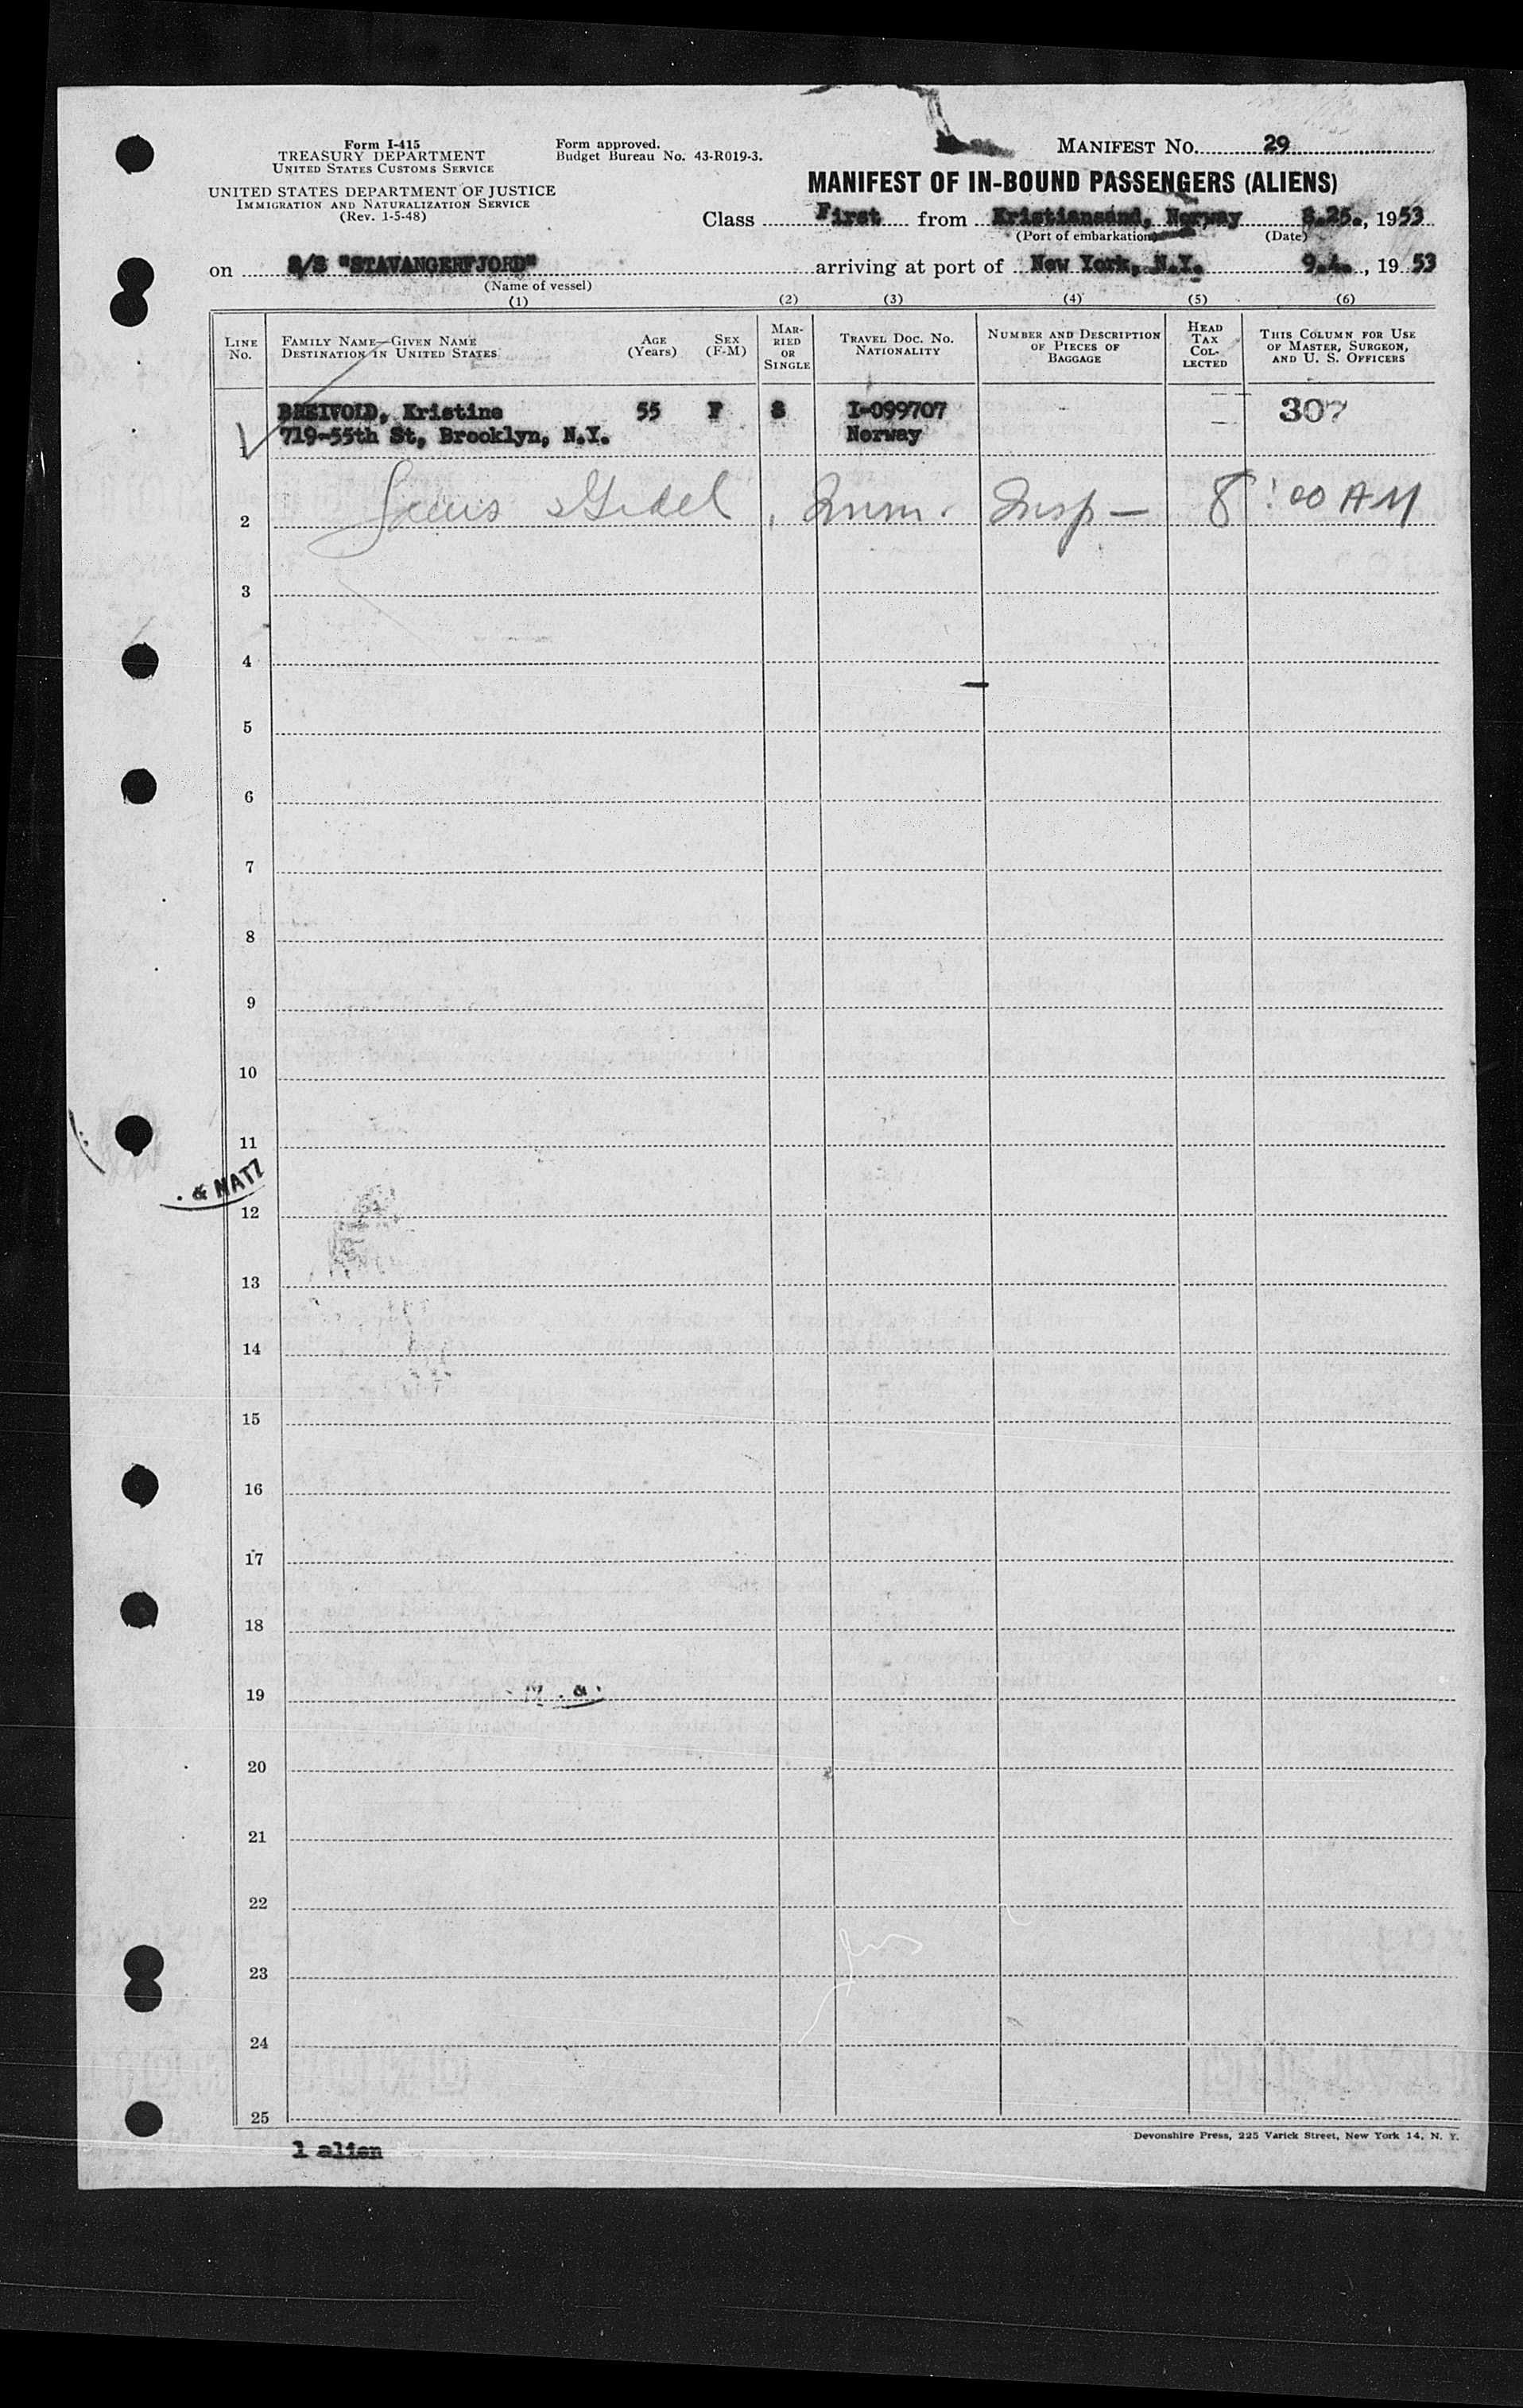 Form I-415
TREASURY DEPARTMENT
UNITED STATES CUSTOMS SERVICE
UNITED STATES DEPARTMENT OF JUSTICE
IMMIGRATION AND NATURALIZATION SERVICE
(Rev. 1-5-48)
Form approved.
Budget Bureau No. 43-R019-3.
MANIFEST NO. 29
MANIFEST OF IN-BOUND PASSENGERS (ALIENS)
Class First from Kristiansand, Norway 8.25., 1953
(Port of embarkation) (Date)
on S/S "STAVANGERFJORD" arriving at port of New York, N.Y. 9.4., 1953
(Name of vessel)
(1) (2) (3) (4) (5) (6)
LINE NO.
FAMILY NAME—GIVEN NAME
DESTINATION IN UNITED STATES
AGE (Years)
SEX (F-M)
MARRIED OR SINGLE
TRAVEL DOC. NO. NATIONALITY
NUMBER AND DESCRIPTION OF PIECES OF BAGGAGE
HEAD TAX COLLECTED
THIS COLUMN FOR USE OF MASTER, SURGEON, AND U. S. OFFICERS
BREIVOLD, Kristine 55 F S I-099707 - — 307
1 719-55th St, Brooklyn, N.Y. Norway —
2 Imm. Insp — 8:00 AM
3
4
5
6
7
8
9
10
11
. & NATZ
12
13
14
15
16
17
18
19
20
21
22
23
24
25
1 alien
Devonshire Press, 225 Varick Street, New York 14, N. Y.